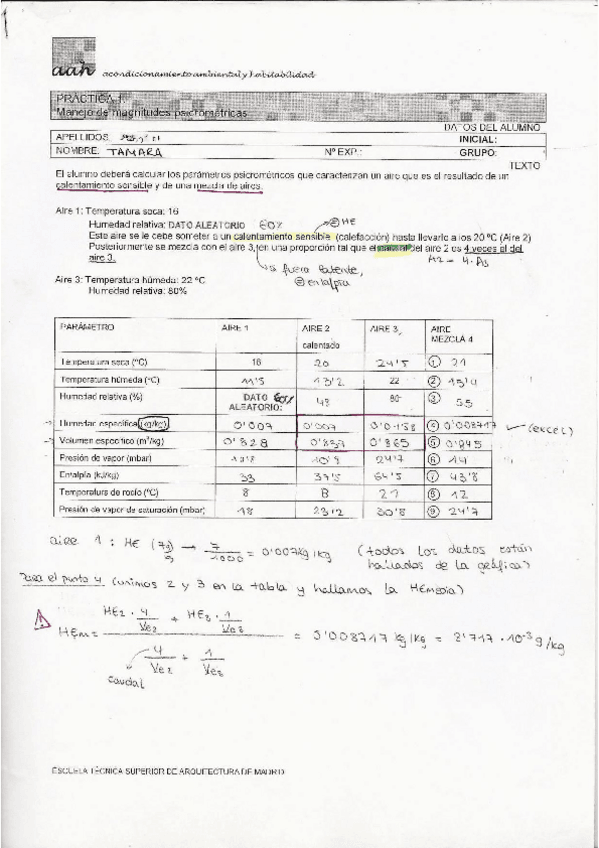 1
aah acondicionamiento ambiental y habitabilidad
PRÁCTICA 1.
Manejo de magnitudes psicrométricas.
DATOS DEL ALUMNO
APELLIDOS: INICIAL:
NOMBRE: TAMARA Nº EXP.: GRUPO:
TEXTO
El alumno deberá calcular los parámetros psicrométricos que caracterizan un aire que es el resultado de un
calentamiento sensible y de una mezcla de aires.
Aire 1: Temperatura seca: 16
Humedad relativa: DATO ALEATORIO 60% = HE
Este aire se le debe someter a un calentamiento sensible (calefacción) hasta llevarlo a los 20 ºC (Aire 2)
Posteriormente se mezcla con el aire 3, en una proporción tal que el caudal del aire 2 es 4 veces el del
aire 3.
A2 = 4·A3
si fuera latente,
= entalpía
Aire 3: Temperatura húmeda: 22 ºC
Humedad relativa: 80%
PARÁMETRO AIRE 1 AIRE 2 calentado AIRE 3 AIRE MEZCLA 4
Temperatura seca (ºC) 16 20 24'5 1 21
Temperatura húmeda (ºC) 11'5 13'2 22 2 15'4
Humedad relativa (%) DATO ALEATORIO: 60% 48 80 3 55
Humedad específica (kg/kg) 0'007 0'007 0'0158 4 0'008717 (excel)
Volumen específico (m³/kg) 0'828 0'837 0'865 5 0'845
Presión de vapor (mbar) 10'9 24'7 6 14
Entalpía (kJ/kg) 33 37'5 64'5 7 43'8
Temperatura de rocío (ºC) 8 8 21 8 12
Presión de vapor de saturación (mbar) 18 23'2 30'8 9 24'7
aire 1: HE (7g) → 7/1000 = 0'007 kg/kg (todos los datos están
hallados de la gráfica)
Para el punto 4 (unimos 2 y 3 en la tabla y hallamos la HEmedia)
HEm = (HE2 · 4/Ve2 + HE3 · 1/Ve3) / (4/Ve2 + 1/Ve3) = 0'008717 kg/kg = 8'717 · 10-3 g/kg
caudal
ESCUELA TÉCNICA SUPERIOR DE ARQUITECTURA DE MADRID